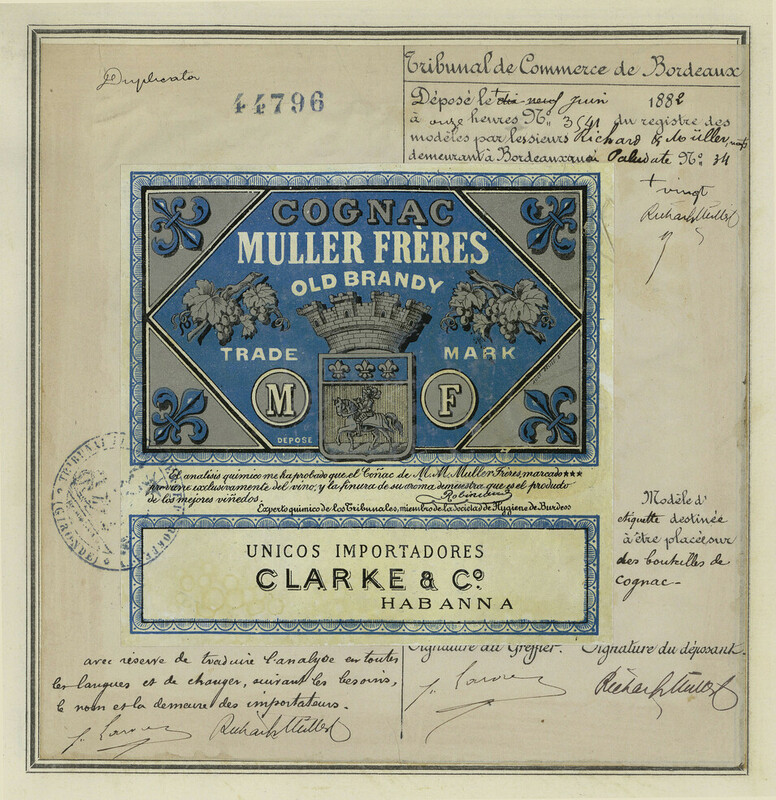 Duplicata
44796
Tribunal de Commerce de Bordeaux
Déposé le dix neuf juin 1882
à onze heures N° 3541 du registre des
modèles par les sieurs Richard & Müller,
demeurant à Bordeaux quai Paludate N° 34
+ vingt
Richard & Müller
COGNAC
MULLER FRÈRES
OLD BRANDY
TRADE MARK
M F
DEPOSÉ
El analisis quimico me ha probado que el Coñac de M.M. Muller Frères, marcado ★★★
proviene exclusivamente del vino, y la finura de su aroma demuestra que es el producto
de los mejores viñedos. Robineaud
Experto quimico de los Tribunales, miembro de la Sociedad de Hygiene de Burdeos
UNICOS IMPORTADORES
CLARKE & Cº
HABANNA
TRIBUNAL
(GIRONDE)
Modèle d'
etiquette destinée
à être placée sur
des bouteilles de
cognac-
avec réserve de traduire l'analyse en toutes
les langues et de changer, suivant les besoins,
le nom et la demeure des importateurs.
Richard & Müller
Signature du Greffier. Signature du déposant.
Richard & Müller